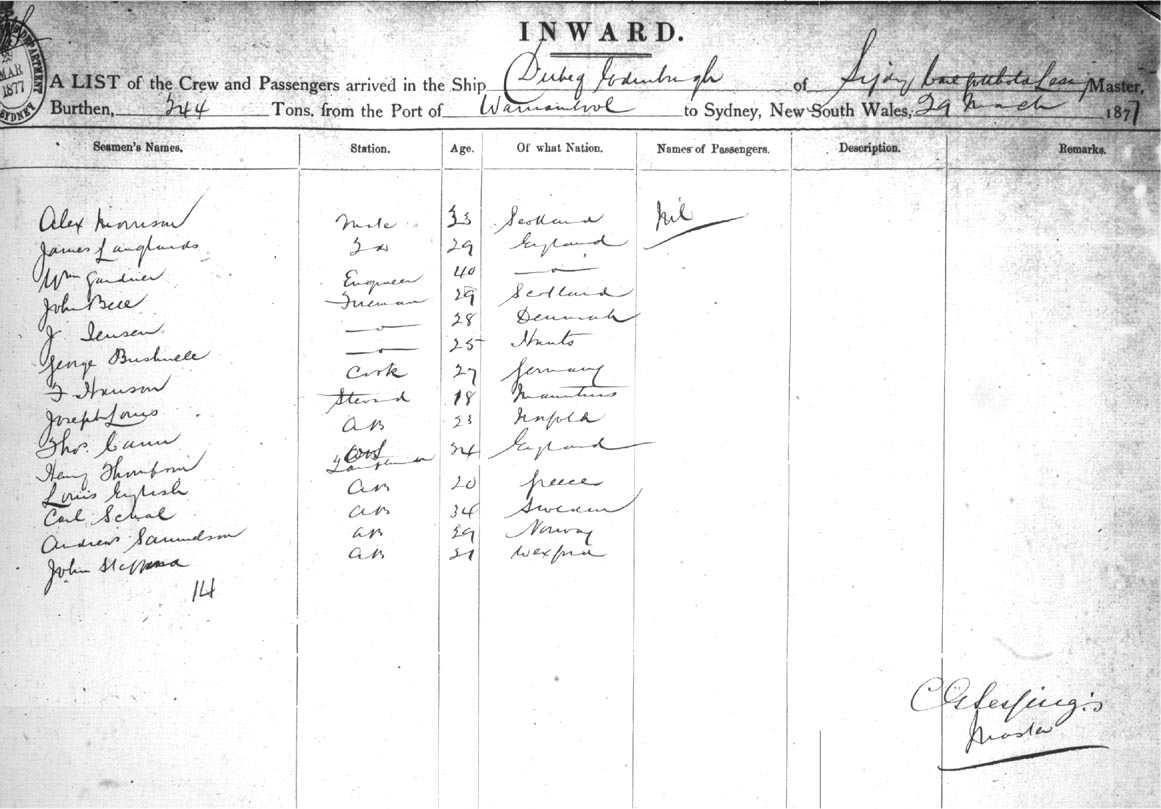 DEPARTMENT
MAR
1877
SYDNEY
INWARD.
A LIST of the Crew and Passengers arrived in the Ship Edinburgh of Master,
Burthen, 344 Tons, from the Port of to Sydney, New South Wales, 29 March 1877
Seamen's Names. Station. Age. Of what Nation. Names of Passengers. Description. Remarks.
Alex Morrison Mate 33 Scotland Nil
James Langlands 29 England
Wm Gardner Engineer 40 —o—
John Bell Fireman 29 Scotland
J Jensen —o— 28 Denmark
George Bushnell —o— 25 Hants
F Hanson Cook 27 Germany
Joseph Louis Steward 18 Mauritius
Thos. Cann AB 23 Norfolk
Henry Thompson 24 England
Louis English AB 20 Greece
Carl AB 34 Sweden
Andrew AB 29 Norway
John AB 21 Wexford
14
Master